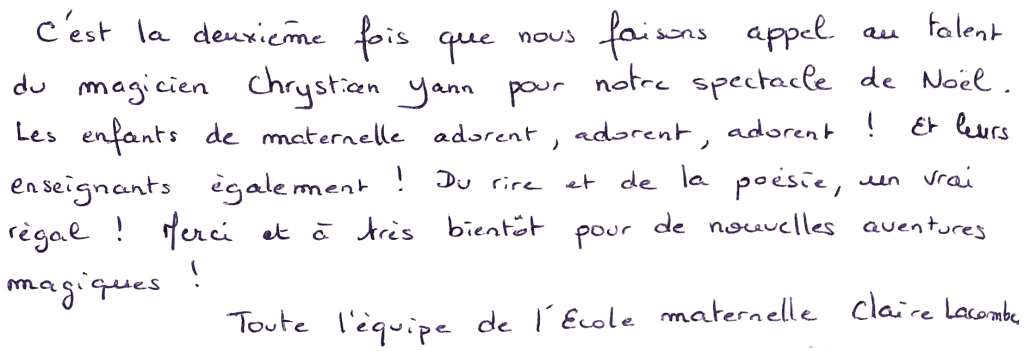 C'est la deuxième fois que nous faisons appel au talent
du magicien Chrystian Yann pour notre spectacle de Noël.
Les enfants de maternelle adorent, adorent, adorent ! Et leurs
enseignants également ! Du rire et de la poésie, un vrai
régal ! Merci et à très bientôt pour de nouvelles aventures
magiques !
Toute l'équipe de l'Ecole maternelle Claire Lacombe